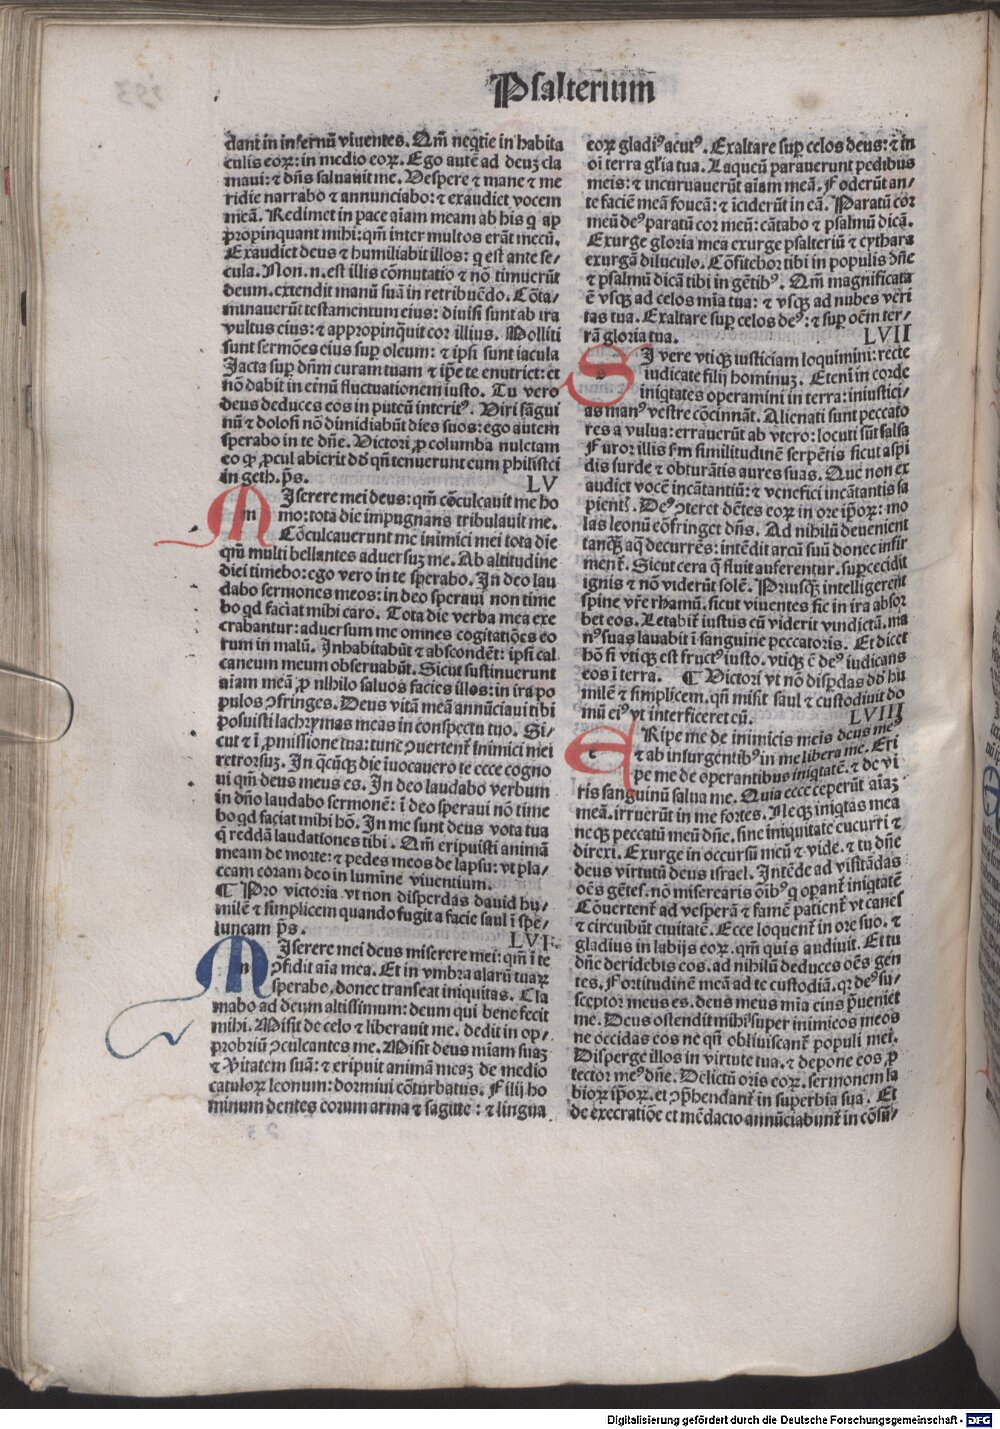 Psalterium
dant in infernū viuentes. Qm̄ neq̄tie in habita
culis eoꝝ: in medio eoꝝ. Ego autē ad deuꝫ cla
maui: ⁊ dn̄s saluauit me. Uespere ⁊ mane ⁊ me
ridie narrabo ⁊ annunciabo: ⁊ exaudiet vocem
meā. Redimet in pace aīam meam ab his q̄ ap
ꝓpinquant mihi: qm̄ inter multos erāt mecū.
Exaudiet deus ⁊ humiliabit illos: q̄ est ante se/
cula. Non .n. est illis cōmutatio ⁊ nō timuerūt
deum. extendit manū suā in retribuēdo. Cōta/
minauerūt testamentum eius: diuisi sunt ab ira
vultus eius: ⁊ appropinq̄uit cor illius. Molliti
sunt sermōes eius suꝑ oleum: ⁊ ipsi sunt iacula
Jacta suꝑ dn̄m curam tuam ⁊ ip̄e te enutriet: et
nō dabit in eternū fluctuationem iusto. Tu vero
deus deduces eos in puteū interitꝰ. Uiri sāgui
nū ⁊ dolosi nō dimidiabūt dies suos: ego autem
sperabo in te dn̄e. Uictori ꝓ columba mulctam
eo ꝙ ꝓcul abierit dd̄ qn̄ tenuerunt eum philistei
in geth. p̄s. LV
M m Jserere mei deus: qm̄ cōculcauit me ho
mo: tota die impugnans tribulauit me.
Cōculcauerunt me inimici mei tota die
qm̄ multi bellantes aduersuꝫ me. Ab altitudine
diei timebo: ego vero in te sperabo. Jn deo lau
dabo sermones meos: in deo speraui non time
bo qd faciat mihi caro. Tota die verba mea exe
crabantur: aduersum me omnes cogitatiōes eo
rum in malū. Jnhabitabūt ⁊ abscondēt: ipsi cal
caneum meum obseruabūt. Sicut sustinuerunt
aīam meā ꝓ nihilo saluos facies illos: in ira po
pulos ꝯfringes. Deus vitā meā annūciaui tibi
posuisti lachrymas meas in conspectu tuo. Si/
cut ⁊ ī ꝓmissione tua: tunc ꝯuertent̄ inimici mei
retrorsuꝫ. Jn q̄cūqꝫ die īuocauero te ecce cogno
ui qm̄ deus meus es. Jn deo laudabo verbum
in dn̄o laudabo sermonē: ī deo speraui nō time
bo qd faciat mihi hō. Jn me sunt deus vota tua
q̄ reddā laudationes tibi. Qm̄ eripuisti animā
meam de morte: ⁊ pedes meos de lapsu: vt pla/
ceam coram deo in lumine viuentium.
¶ Pro victoria vt non disperdas dauid hu/
milē ⁊ simplicem quando fugit a facie saul ī spe/
luncam p̄s. LVI
M m Jserere mei deus miserere mei: qm̄ ī te
ꝯfidit aīa mea. Et in vmbra alarū tuaꝝ
sperabo, donec transeat iniquitas. Cla
mabo ad deum altissimum: deum qui bene fecit
mihi. Misit de celo ⁊ liberauit me. dedit in op/
probriū ꝯculcantes me. Misit deus mīam suaꝫ
⁊ v̄itatem suā: ⁊ eripuit animā meaꝫ de medio
catuloꝝ leonum: dormiui cōturbatus. Filij ho
minum dentes eorum arma ⁊ sagitte: ⁊ lingua
eoꝝ gladiꝰ acutꝰ. Exaltare suꝑ celos deus: ⁊ in
oī terra gl̄ia tua. Laqueū parauerunt pedibus
meis: ⁊ incuruauerūt aīam meā. Foderūt an/
te faciē meā foueā: ⁊ īciderūt in eā. Paratū cor
meū deꝰ paratū cor meū: cātabo ⁊ psalmū dicā.
Exurge gloria mea exurge psalteriū ⁊ cythara
exurgā diluculo. Cōfitebor tibi in populis dn̄e
⁊ psalmū dicā tibi in gētibꝰ. Qm̄ magnificata
ē vsqꝫ ad celos mīa tua: ⁊ vsqꝫ ad nubes veri
tas tua. Exaltare suꝑ celos deꝰ: ⁊ suꝑ oēm ter/
rā gloria tua. LVII
S Ji vere vtiqꝫ iusticiam loquimini: recte
iudicate filij hominuꝫ. Etenī in corde
iniq̄tates operamini in terra: iniustici/
as manꝰ vestre cōcinnāt. Alienati sunt peccato
res a vulua: errauerūt ab vtero: locuti sūt falsa
Furoꝛ illis s̄m similitudinē serpētis sicut aspi
dis surde ⁊ obturātis aures suas. Que non ex
audiet vocē incātantiū: ⁊ venefici incātantis sa
pient̄. Deꝰ ꝯteret dētes eoꝝ in ore ip̄oꝝ: mo
las leonū cōfringet dn̄s. Ad nihilū deuenient
tanqꝫ aq̄ decurrēs: intēdit arcū suū donec infir
ment̄. Sicut cera q̄ fluit auferentur. suꝑcecidit
ignis ⁊ nō viderūt solē. Priusqꝫ intelligerent
spine vr̄e rhamū. sicut viuentes sic in ira absoꝛ
bet eos. Letabit̄ iustus cū viderit vindictā. ma
nꝰ suas lauabit ī sanguine peccatoris. Et dicet
hō si vtiqꝫ est fructꝰ iusto. vtiqꝫ ē deꝰ iudicans
eos ī terra. ¶ Uictori vt nō disꝑdas dd̄ hu
milē ⁊ simplicem. qn̄ misit saul ⁊ custodiuit do
mū eiꝰ vt interficeret eū. LVIII
E e Ripe me de inimicis meis deus meꝰ
⁊ ab insurgentibꝰ in me libera me. Eri
pe me de operantibus iniq̄tatē. ⁊ de vi
ris sanguinū salua me. Quia ecce ceperūt aīaꝫ
meā. irruerūt in me fortes. Neqꝫ iniq̄tas mea
neqꝫ peccatū meū dn̄e. sine iniquitate cucurri ⁊
direxi. Exurge in occursū meū ⁊ vide. ⁊ tu dn̄e
deus virtutū deus israel. Jntēde ad visitādas
oēs gētes. nō miserearis oībꝰ q̄ opant̄ iniq̄tatē
Cōuertent̄ ad vesperā ⁊ famē patient̄ vt canes
⁊ circuibūt ciuitatē. Ecce loquent̄ in ore suo. ⁊
gladius in labijs eoꝝ. qm̄ quis audiuit. Et tu
dn̄e deridebis eos. ad nihilū deduces oēs gen
tes. Fortitudinē meā ad te custodiā. qꝛ deꝰ su/
sceptor meus es. deus meus mīa eius p̄ueniet
me. Deus ostendit mihi super inimicos meos
ne occidas eos ne qn̄ obliuiscant̄ populi mei.
Disperge illos in virtute tua. ⁊ depone eos ꝓ
tector meꝰ dn̄e. Delictū oris eoꝝ. sermonem la
bioꝝ ip̄oꝝ. et ꝯp̄hendant̄ in superbia sua. Et
de execratiōe et mēdacio annūciabunt̄ in cōsū/
Digitalisierung gefördert durch die Deutsche Forschungsgemeinschaft - DFG